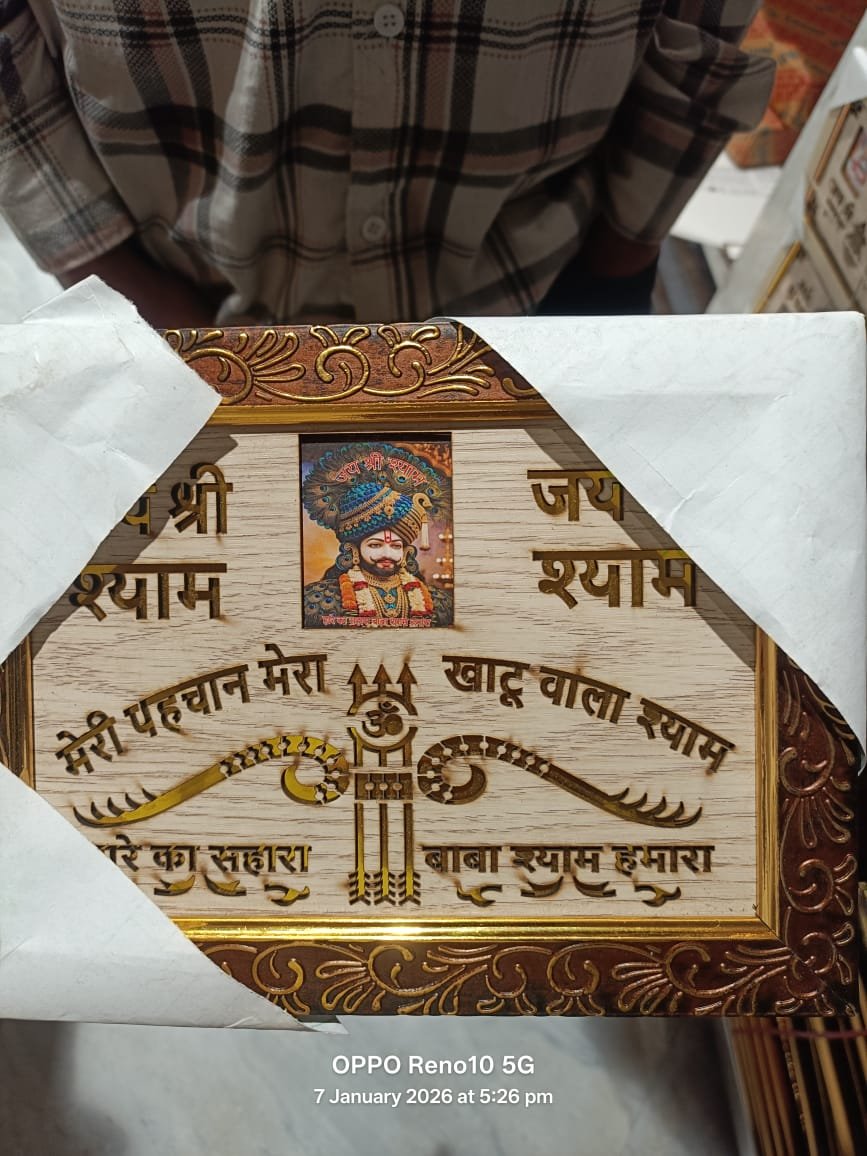 जय श्री श्याम
श्री
श्याम
जय
श्याम
मेरी पहचान मेरा खाटू वाला श्याम
ॐ
का सहारा बाबा श्याम हमारा
OPPO Reno10 5G
7 January 2026 at 5:26 pm